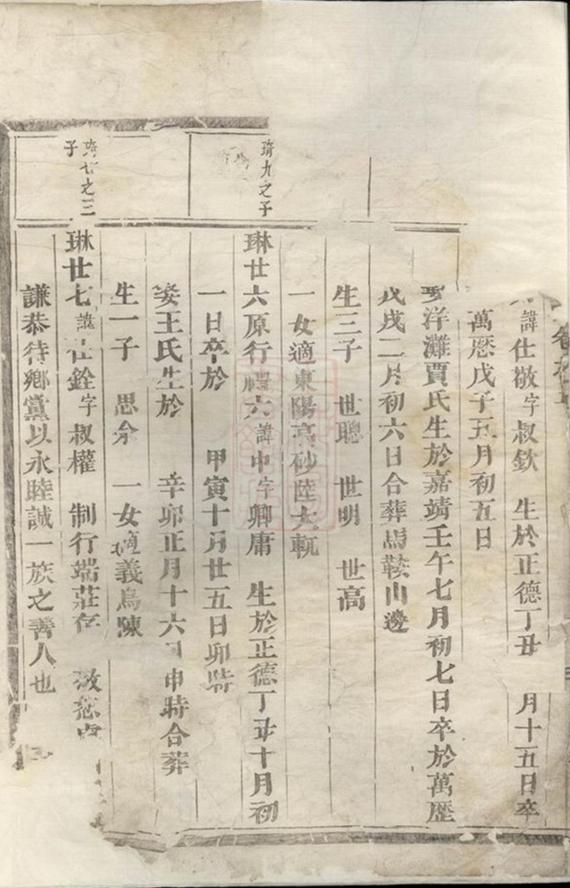 諱仕敬字叔欽 生於正德丁丑 月十五日卒
萬歷戊子五月初五日
洋灘賈氏生於嘉靖壬午七月初七日卒於萬歷
戊戌二月初六日合葬馬鞍山邊
生三子 世聰 世明 世高
一女適東陽高砂陸大軌
琦九之子
琳廿六原行禮六諱申字卿庸 生於正德丁丑十月初
一日卒於 甲寅十月廿五日卯時
娶王氏生於 辛卯正月十六日申時合葬
生一子 思 一女適義烏陳
琦廿之三子
琳廿七諱仕銓字叔權 制行端莊存
謙恭待鄉黨以永睦誠一族之善人也